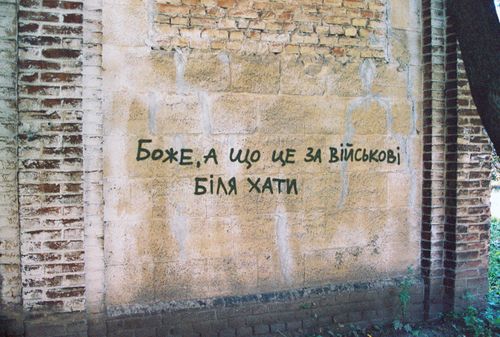 Боже, а що це за військові
біля хати